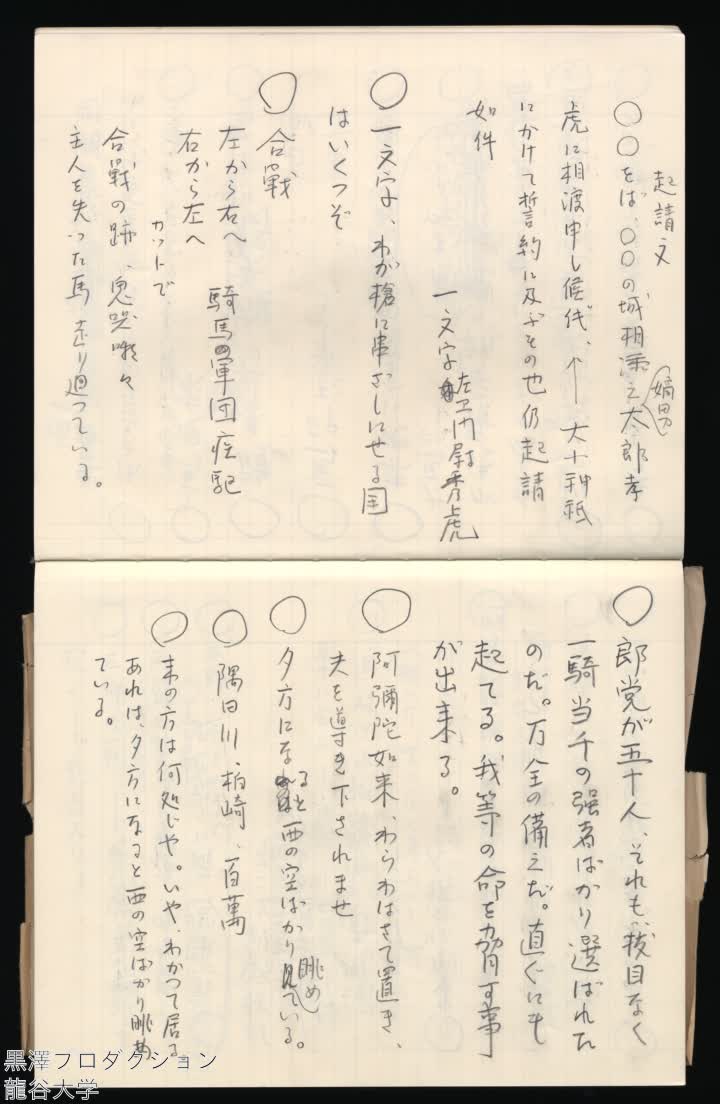 起請文
〇〇をば、〇〇の城相添え太郎孝
嫡男
虎に相渡申し候代、↑大小神祇
にかけて誓約に及ぶその也仍起請
如件
一文字左衛門尉秀虎
〇一文字、わが槍に串ざしにせる国
はいくつぞ
〇合戦
左から右へ
右から左へ
騎馬軍団疾駆
カットで
合戰の跡、鬼哭啾々
主人を失った馬、走り廻っている。
〇郎党が五十人、それも、抜目なく
一騎当千の強者ばかり選ばれた
のだ。万全の備えだ。直ぐにも
起てる。我等の命を脅す事
が出来る。
〇阿彌陀如来、わらわはさて置き、
夫を導き下されませ
〇夕方になると西の空ばかり眺めている。
〇隅田川、柏崎、百萬
〇末の方は何処じや。いや、わかつて居る。
あれは、夕方になると西の空ばかり眺め
ている。
黒澤プロダクション
龍谷大学